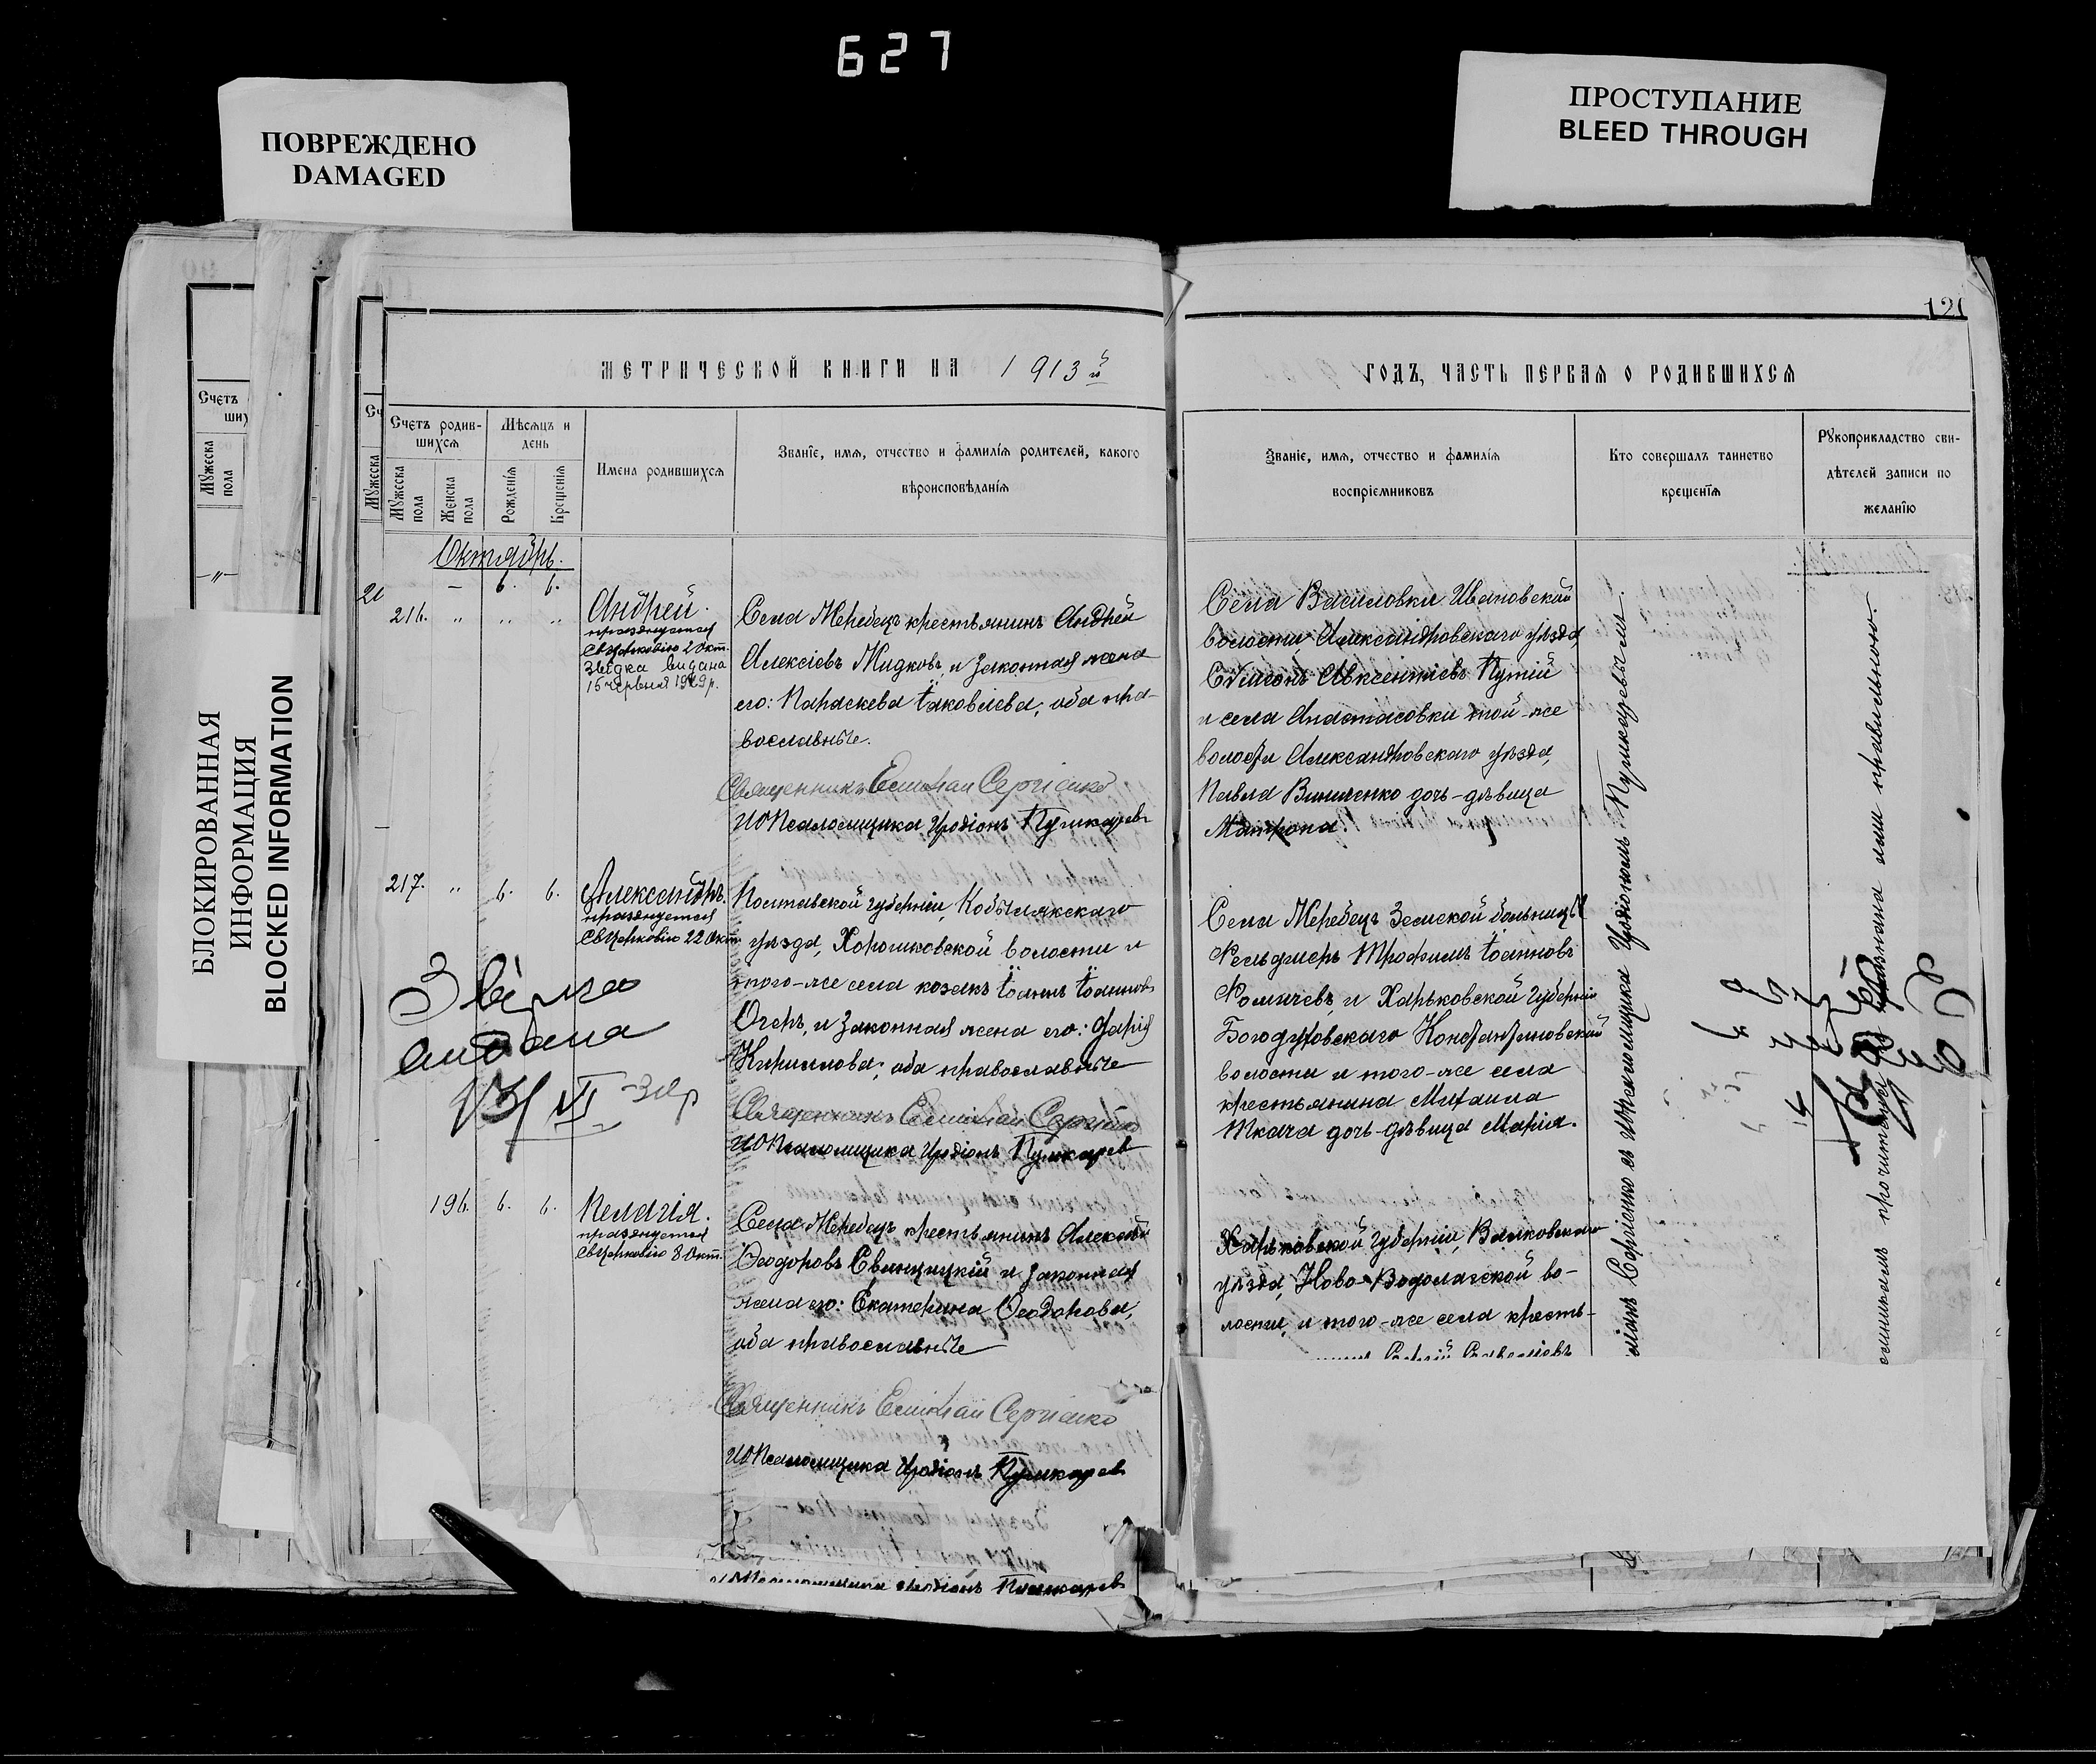 627
ПОВРЕЖДЕНО
DAMAGED
ПРОСТУПАНИЕ
BLEED THROUGH
БЛОКИРОВАННАЯ
ИНФОРМАЦИЯ
BLOCKED INFORMATION
121
МЕТРИЧЕСКОЙ КНИГИ НА 1913й
ГОДЪ, ЧАСТЬ ПЕРВАЯ О РОДИВШИХСЯ
Счетъ родив-
шихся
Мужеска пола
Женска пола
Мѣсяцъ и
день
Рожденія
Крещенія
Имена родившихся
Званіе, имя, отчество и фамилія родителей, какого
вѣроисповѣданія
Званіе, имя, отчество и фамилія
воспріемниковъ
Кто совершалъ таинство
крещенія
Рукоприкладство сви-
дѣтелей записи по
желанію
Октябрь.
6. 6.
216.
Андрей.
празднуемый
Св.Церковію 2 Окт.
видана
15 червня 1929 р.
Села Жеребецъ крестьянинъ Андрей
Алексіевъ Жидковъ, и законная жена
его: Параскева Іаковлева, оба пра-
вославные.
Священникъ Емиліан Сергіенко
ИО Псаломщика Иродіонъ Пушкаревъ
Села Василовки Ивановской
волости, Александровскаго уѣзда,
Сѵмеонъ Авксентіевъ Путій
и села Анастасовки той-же
волости Александровскаго уѣзда,
Павла Винниченко дочь-дѣвица
Матрона.
217. 6. 6.
Александръ.
празднуемый
Св.Церковію 22 Окт.
Полтавской губерніи, Кобылякскаго
уѣзда, Хорошковской волости и
того-же села козакъ Іоаннъ Іоанновъ
и законная жена его: Дарія
Кириллова; оба православные
Священникъ Емиліан Сергіенко
ИО Псаломщика Иродіонъ Пушкаревъ
Села Жеребецъ Земской больницы
Фельдшеръ Трофимъ Іоанновъ
и Харьковской губерніи
Богодуховскаго Константиновской
волости и того-же села
крестьянина Михаила
Ткача дочь-дѣвица Марія.
196. 6. 6.
Пелагія.
празднуемый
Св.Церковію 8 Окт.
Села Жеребецъ крестьянинъ Алексій
Ѳеодоровъ Свинцицкій и законная
жена его: Екатерина Ѳеодорова,
оба православные
Священникъ Емиліан Сергіенко
ИО Псаломщика Иродіонъ Пушкаревъ
Харьковской губерніи, Валковскаго
уѣзда, Ново-Водолагской во-
лости, и того-же села кресть-
ИО Псаломщика Иродіонъ Пушкаревъ
Сергіенко съ ИО Псаломщика Иродіономъ Пушкаревымъ.